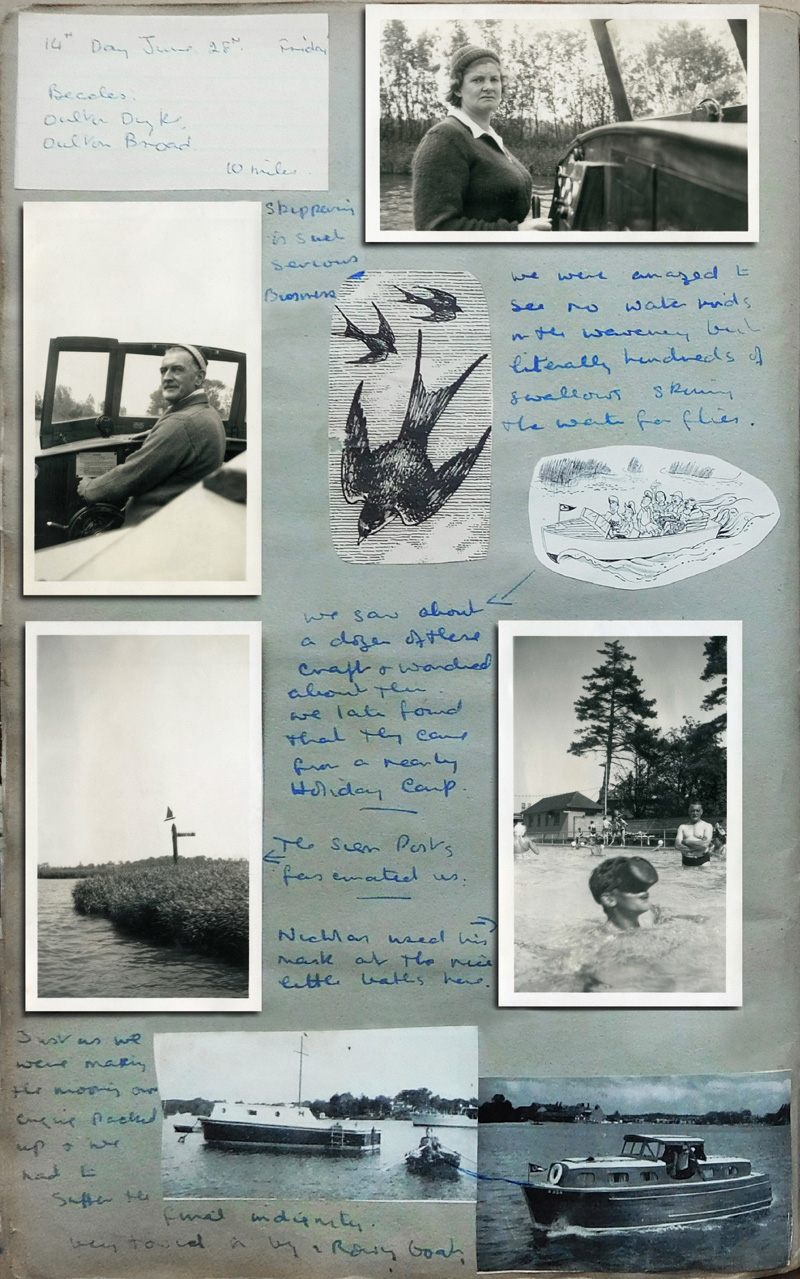 14th Day June 28th. Friday
Beccles.
Oulton Dyke,
Oulton Broad
10 miles.
Skippering
is such
serious
Business
we were amazed to
see no water birds
on the waveney but
literally hundreds of
swallows skimming
the water for flies.
we saw about
a dozen of these
craft & wondered
about them.
we later found
that they came
from a nearby
Holiday Camp.
The Sign Posts
fascinated us.
Nicholas used his
mask at the nice
little baths here.
Just as we
were making
the mooring our
engine packed
up & we
had to
suffer the
final indignity.
being towed in by a Rowing boat.